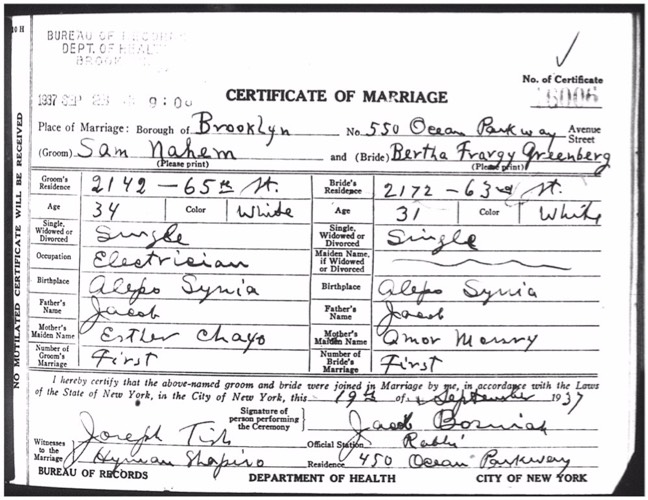 10 H
BUREAU OF RECORDS
DEPT. OF HEALTH
BROOK
1937 9:00
No. of Certificate
CERTIFICATE OF MARRIAGE
Place of Marriage: Borough of Brooklyn No. 550 Ocean Parkway Avenue Street
(Groom) Sam Nahem and (Bride) Bertha Frargy Greenberg
(Please print) (Please print)
Groom's Residence 2142 - 65th St. Bride's Residence 2172 - 63rd St.
Age 34 Color White Age 31 Color White
Single, Widowed or Divorced Single Single, Widowed or Divorced Single
Occupation Electrician Maiden Name, if Widowed or Divorced
Birthplace Alepo Syria Birthplace Alepo Syria
Father's Name Jacob Father's Name Jacob
Mother's Maiden Name Esther Chayo Mother's Maiden Name
Number of Groom's Marriage First Number of Bride's Marriage First
I hereby certify that the above-named groom and bride were joined in Marriage by me, in accordance with the Laws
of the State of New York, in the City of New York, this 19th of September 1937
Signature of person performing the Ceremony Jacob Bosniak
Witnesses to the Marriage Joseph Official Station Rabbi
Hyman Shapiro Residence 450 Ocean Parkway
BUREAU OF RECORDS DEPARTMENT OF HEALTH CITY OF NEW YORK
NO MUTILATED CERTIFICATE WILL BE RECEIVED